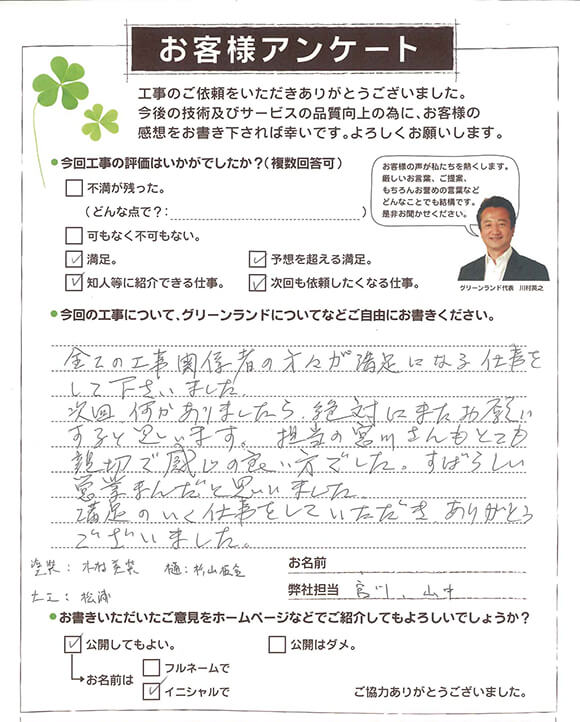 お客様アンケート
工事のご依頼をいただきありがとうございました。
今後の技術及びサービスの品質向上の為に、お客様の
感想をお書き下されば幸いです。よろしくお願いします。
●今回工事の評価はいかがでしたか？（複数回答可）
不満が残った。
（どんな点で？：　）
可もなく不可もない。
満足。
予想を超える満足。
知人等に紹介できる仕事。
次回も依頼したくなる仕事。
お客様の声が私たちを熱くします。
厳しいお言葉、ご提案、
もちろんお誉めの言葉など
どんなことでも結構です。
是非お聞かせください。
グリーンランド代表　川村英之
●今回の工事について、グリーンランドについてなどご自由にお書きください。
全ての工事関係者の方々が満足になる仕事を
して下さいました。
次回何かありましたら、絶対にまたお願い
すると思います。担当の宮川さんもとても
親切で感じの良い方でした。すばらしい
営業まんだと思いました
満足のいく仕事をしていただき、ありがとう
ございました。
塗装：木村塗装　樋：杉山板金
大工：松浦
お名前
弊社担当　宮川、山中
●お書きいただいたご意見をホームページなどでご紹介してもよろしいでしょうか？
公開してもよい。
公開はダメ。
お名前は
フルネームで
イニシャルで
ご協力ありがとうございました。